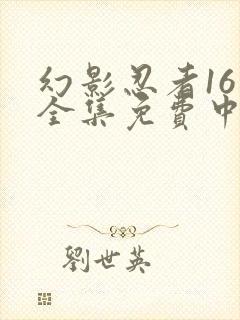 幻影忍者16
全集免費中
劉世英